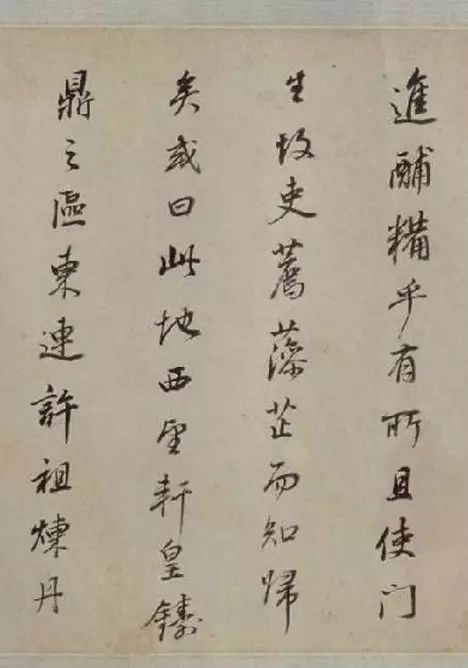 進酺糒乎有所且使门
生故吏薦藻芷而知歸
矣或曰此地西望軒皇鑄
鼎之區東連許祖煉丹